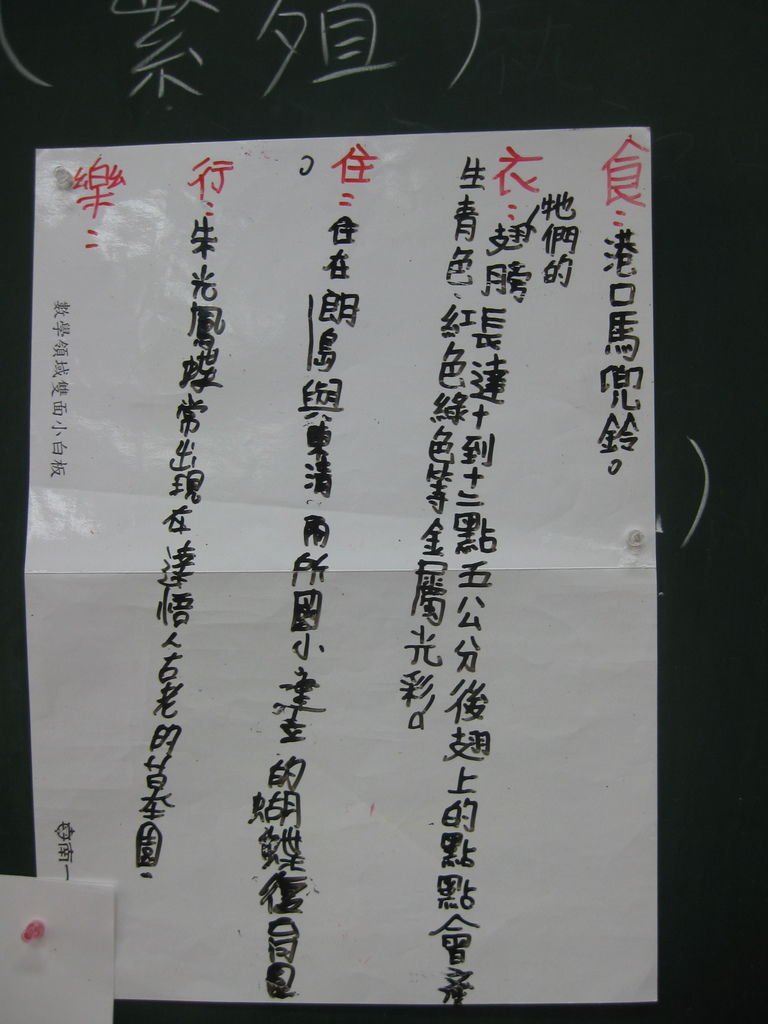 (繁殖)
食：港口馬兜鈴。
牠們的
衣：翅膀長達十到十二點五公分後翅上的點點會產
生青色、紅色綠色等金屬光彩。
住：住在朗島與東清兩所國小建立的蝴蝶復育園
。
行：朱光鳳蝶常出現在達悟人古老的李若園。
樂：
數學領域雙面小白板
南一
)